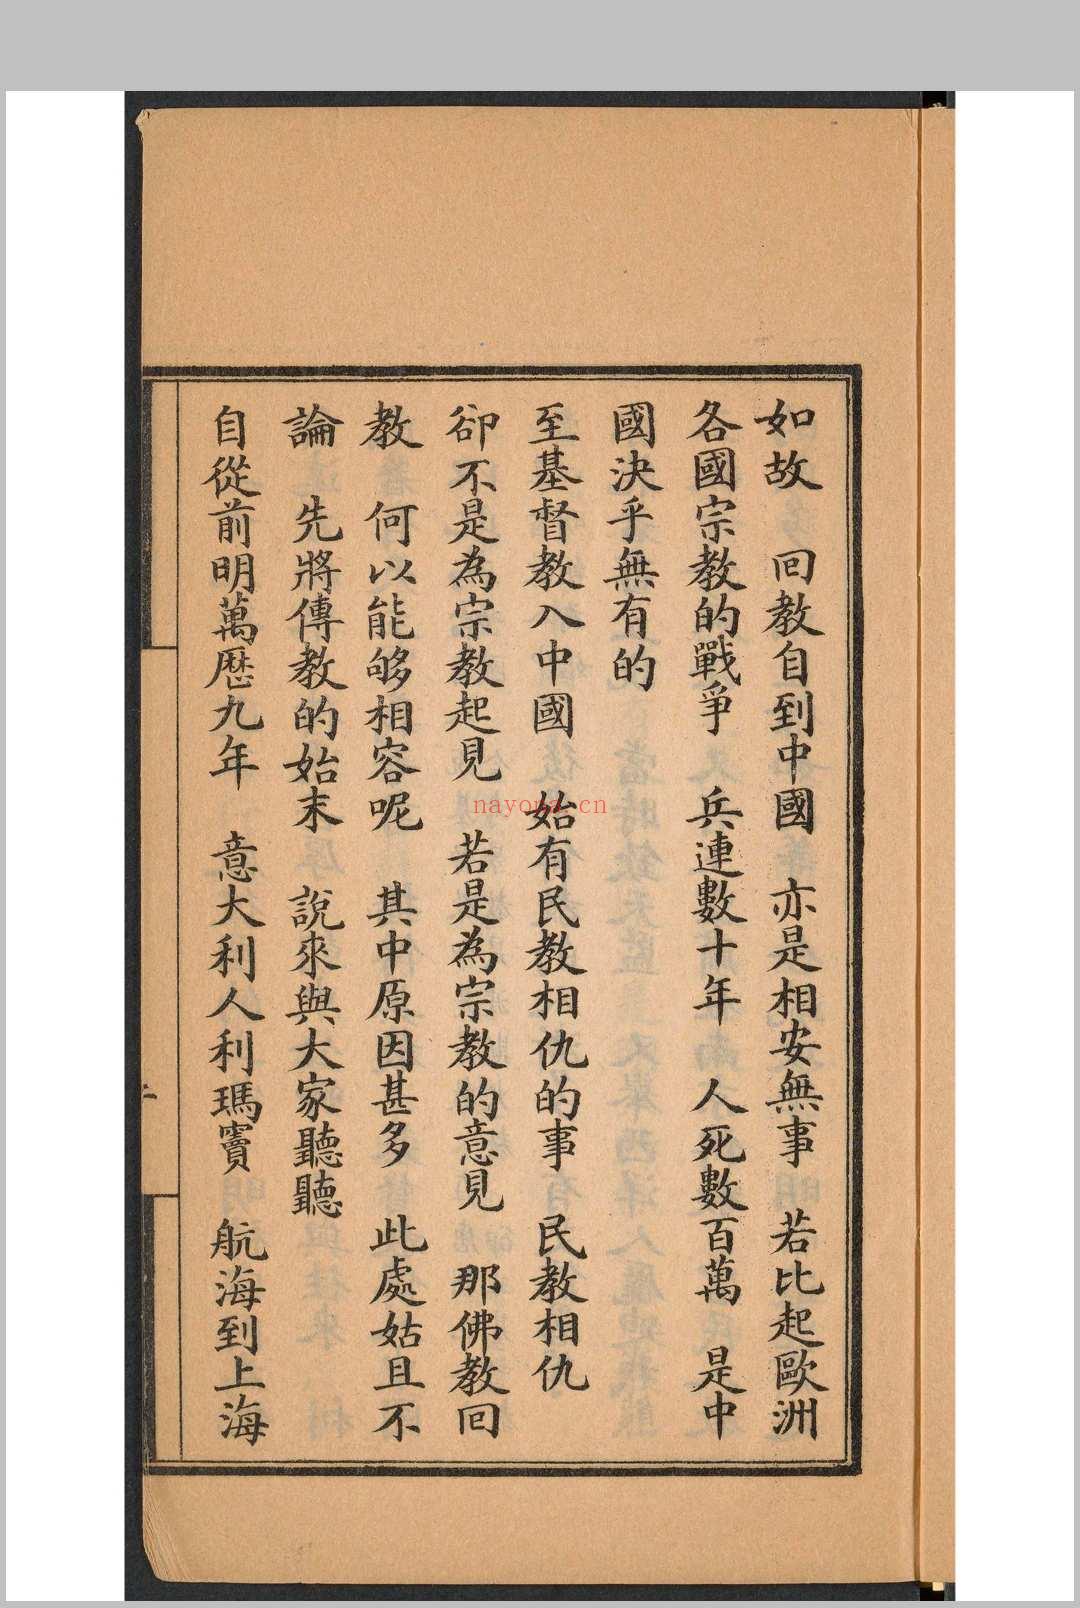 如故　回教自到中國　亦是相安無事　若比起歐洲
各國宗教的戰爭　兵連數十年　人死數百萬　是中
國決乎無有的
至基督教入中國　始有民教相仇的事　民教相仇
卻不是為宗教起見　若是為宗教的意見　那佛教回
教　何以能够相容呢　其中原因甚多　此處姑且不
論　先將傳教的始末　說來與大家聽聽
自從前明萬歷九年　意大利人利瑪竇　航海到上海
nayona.cn